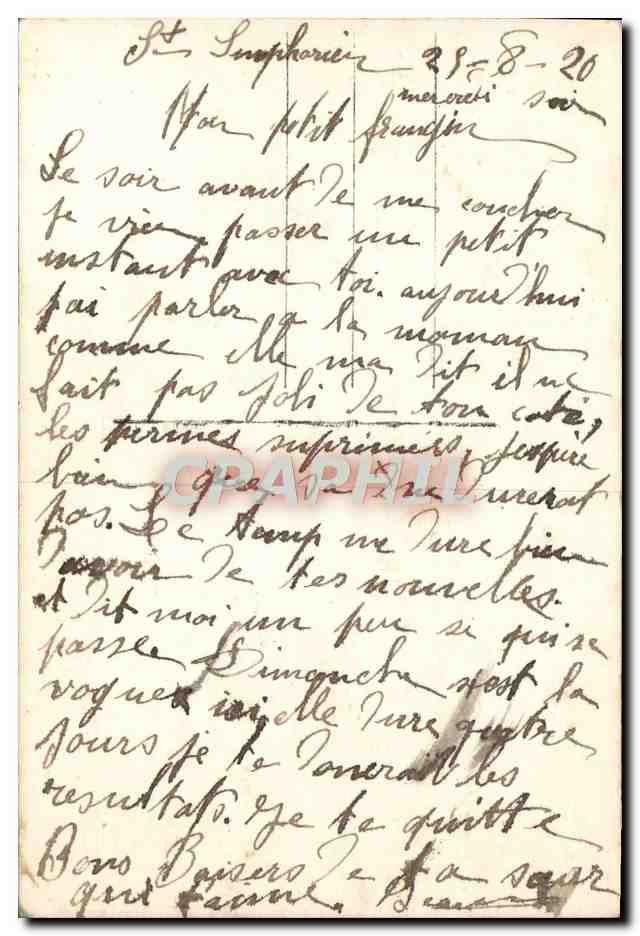 St Simphorien 25-8-20
mercredi soir
Mon petit frangin
Le soir avant de me coucher
je vien passer un petit
instant avec toi. aujourd'hui
jai parler a la maman
comme elle ma dit il ne
fait pas joli de ton coté,
les permes suprimers, jespère
bien que sa ne durerat
pas. Le temp me dure bien
davoir de tes nouvelles.
et dit moi un peu se qui se
passe. Dimanche s'est la
vogue ici, elle dure quatre
jours je te donerait les
resultats. Je te quitte
Bons Baisers de ta sœur
qui t'aime.
CPAPHIL